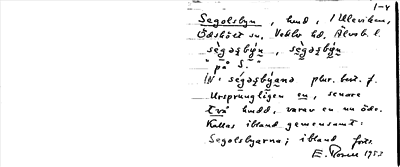 1-4
Segolsbyn, hmd, i Ullerviken,
Ödsköls sn, Vedbo hd, Älvsb. l.
sègəʂbýn, sègəʂbýn
"på S."
IN: ségəʂbýana plur. best. f.
Ursprungligen en, senare
två hmdd, varav en nu öde.
Kallas ibland gemensamt:
Segolsbyarna; ibland förts.
1953